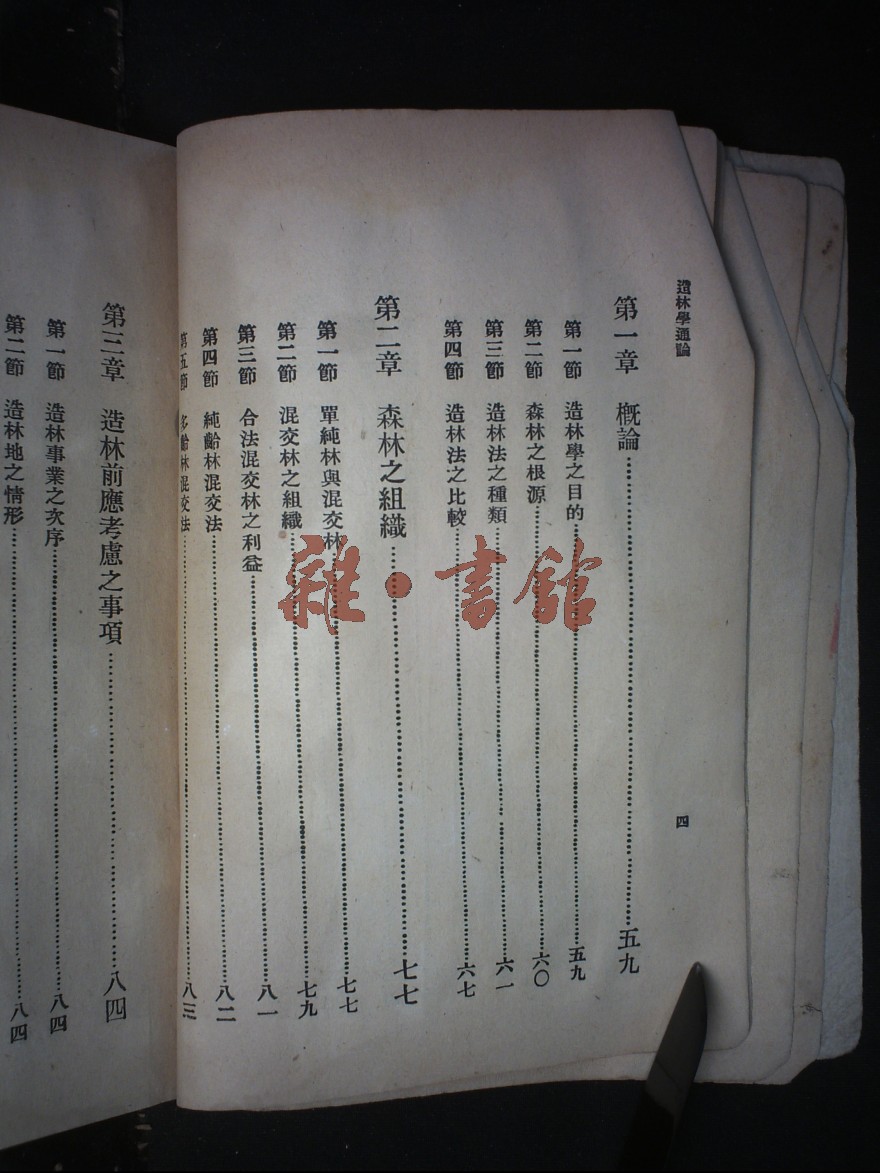 造林學通論
四
第一章 概論……五九
第一節 造林學之目的……五九
第二節 森林之根源……六〇
第三節 造林法之種類……六一
第四節 造林法之比較……六七
第二章 森林之組織……七七
第一節 單純林與混交林……七七
第二節 混交林之組織……七九
第三節 合法混交林之利益……八一
第四節 純齡林混交法……八二
第五節 多齡林混交法……八三
第三章 造林前應考慮之事項……八四
第一節 造林事業之次序……八四
第二節 造林地之情形……八四
雜·書館